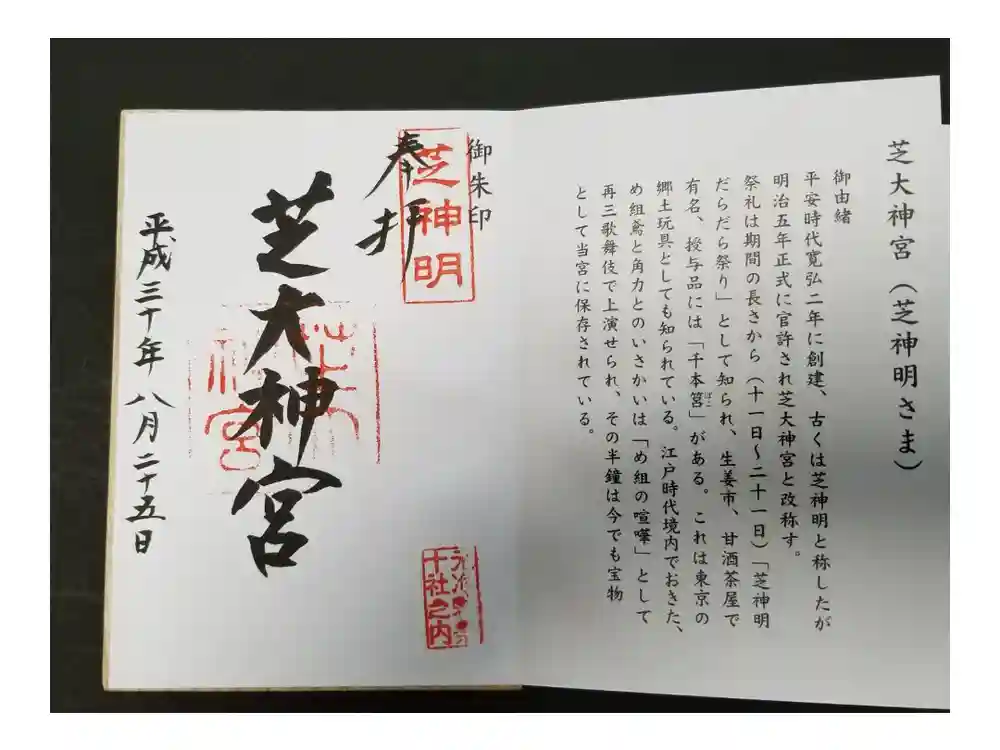 芝大神宮（芝神明さま）
御由緒
平安時代寛弘二年に創建、古くは芝神明と称したが
明治五年正式に官許され芝大神宮と改称す。
祭礼は期間の長さから（十一日～二十一日）「芝神明
だらだら祭り」として知られ、生姜市、甘酒茶屋で
有名、授与品には「千本筥」がある。これは東京の
ばこ
郷土玩具としても知られている。江戸時代境内でおきた、
め組鳶と角力とのいさかいは「め組の喧嘩」として
再三歌舞伎で上演せられ、その半鐘は今でも宝物
として当宮に保存されている。
御朱印
芝神明
奉拝
芝大神宮
平成三十年八月二十五日
十社之内